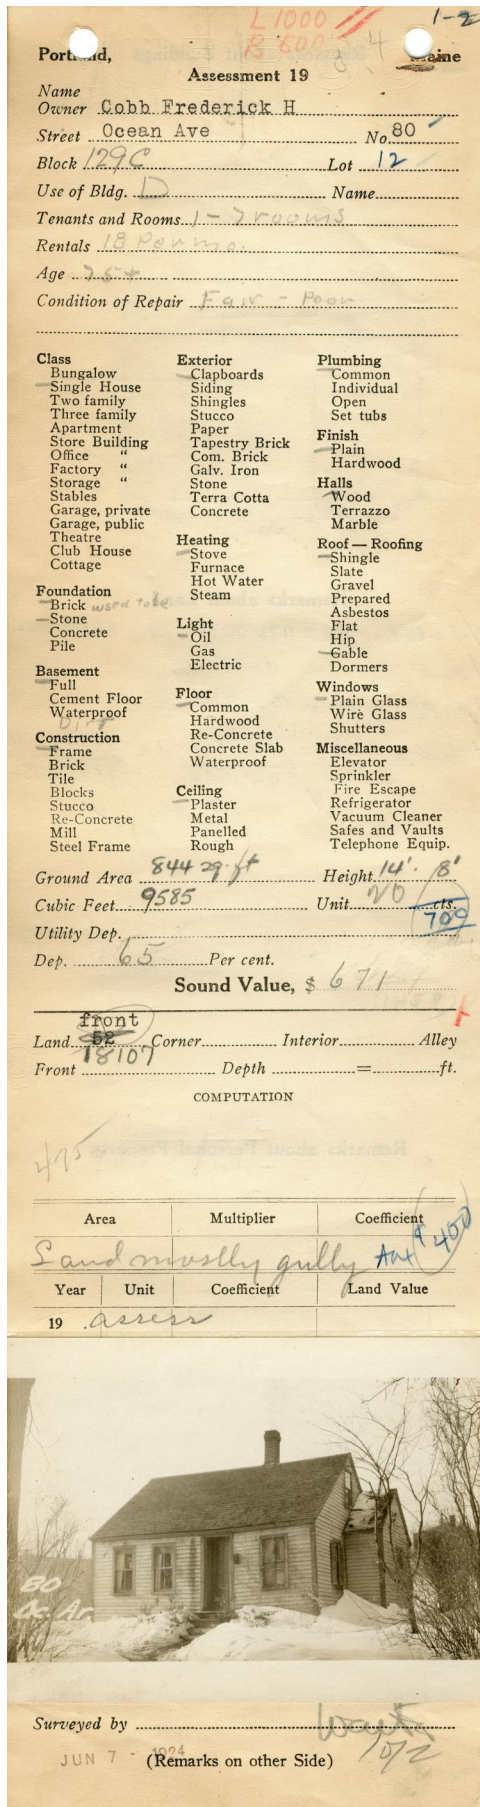 L 1000
B 600
1-2
Portland, Maine
Assessment 19
Name
Owner Cobb Frederick H
Street Ocean Ave No. 80
Block 129C Lot 12
Use of Bldg. D Name
Tenants and Rooms 1 - 7 rooms
Rentals 18 Per mo.
Age 75+
Condition of Repair Fair - Poor
Class
Bungalow
Single House
Two family
Three family
Apartment
Store Building
Office "
Factory "
Storage "
Stables
Garage, private
Garage, public
Theatre
Club House
Cottage
Foundation
Brick
Stone
Concrete
Pile
Basement
Full
Cement Floor
Waterproof
Dirt
Construction
Frame
Brick
Tile
Blocks
Stucco
Re-Concrete
Mill
Steel Frame
Exterior
Clapboards
Siding
Shingles
Stucco
Paper
Tapestry Brick
Com. Brick
Galv. Iron
Stone
Terra Cotta
Concrete
Heating
Stove
Furnace
Hot Water
Steam
Light
Oil
Gas
Electric
Floor
Common
Hardwood
Re-Concrete
Concrete Slab
Waterproof
Ceiling
Plaster
Metal
Panelled
Rough
Plumbing
Common
Individual
Open
Set tubs
Finish
Plain
Hardwood
Halls
Wood
Terrazzo
Marble
Roof — Roofing
Shingle
Slate
Gravel
Prepared
Asbestos
Flat
Hip
Gable
Dormers
Windows
Plain Glass
Wire Glass
Shutters
Miscellaneous
Elevator
Sprinkler
Fire Escape
Refrigerator
Vacuum Cleaner
Safes and Vaults
Telephone Equip.
Ground Area 844 sq. ft Height 14' . 8'
Cubic Feet 9585 Unit 20 cts.
709
Utility Dep.
Dep. 65 Per cent.
Sound Value, $ 671
front
Land 52 Corner Interior Alley
18107
Front Depth = ft.
COMPUTATION
475
Area Multiplier Coefficient
Land mostly gully $400
Year Unit Coefficient Land Value
19 . assess
80
Oc. Av
Surveyed by
JUN 7 - 1924
(Remarks on other Side)